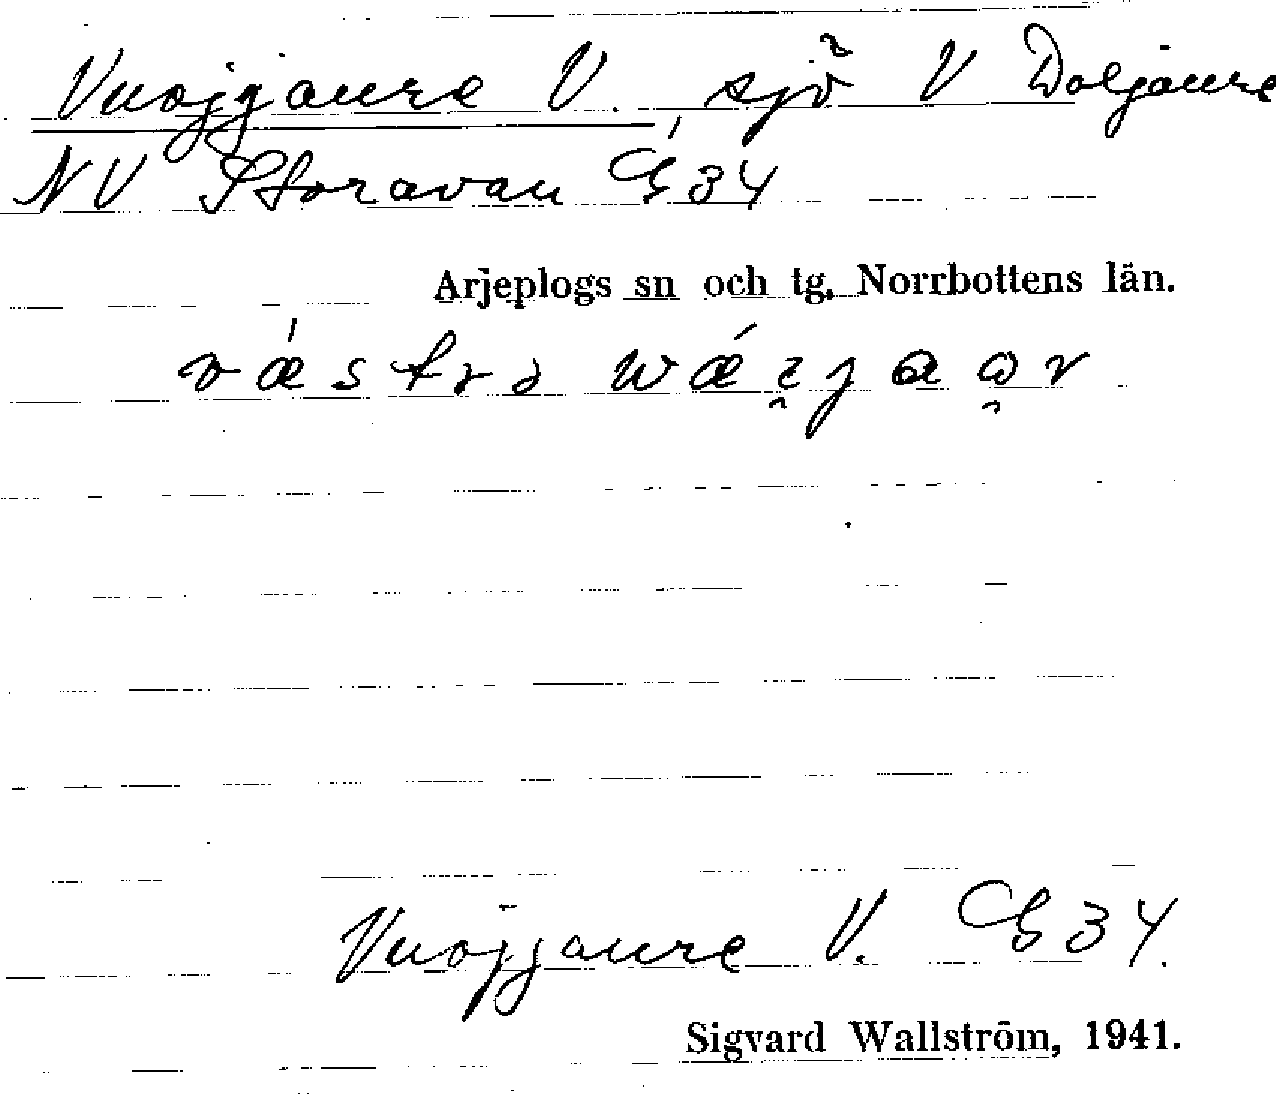 Vuojjaure V. sjö V Doljaure
NV Storavan G 34
Arjeplogs sn och tg. Norrbottens län.
Vuojjaure V. G 34.
Sigvard Wallström, 1941.